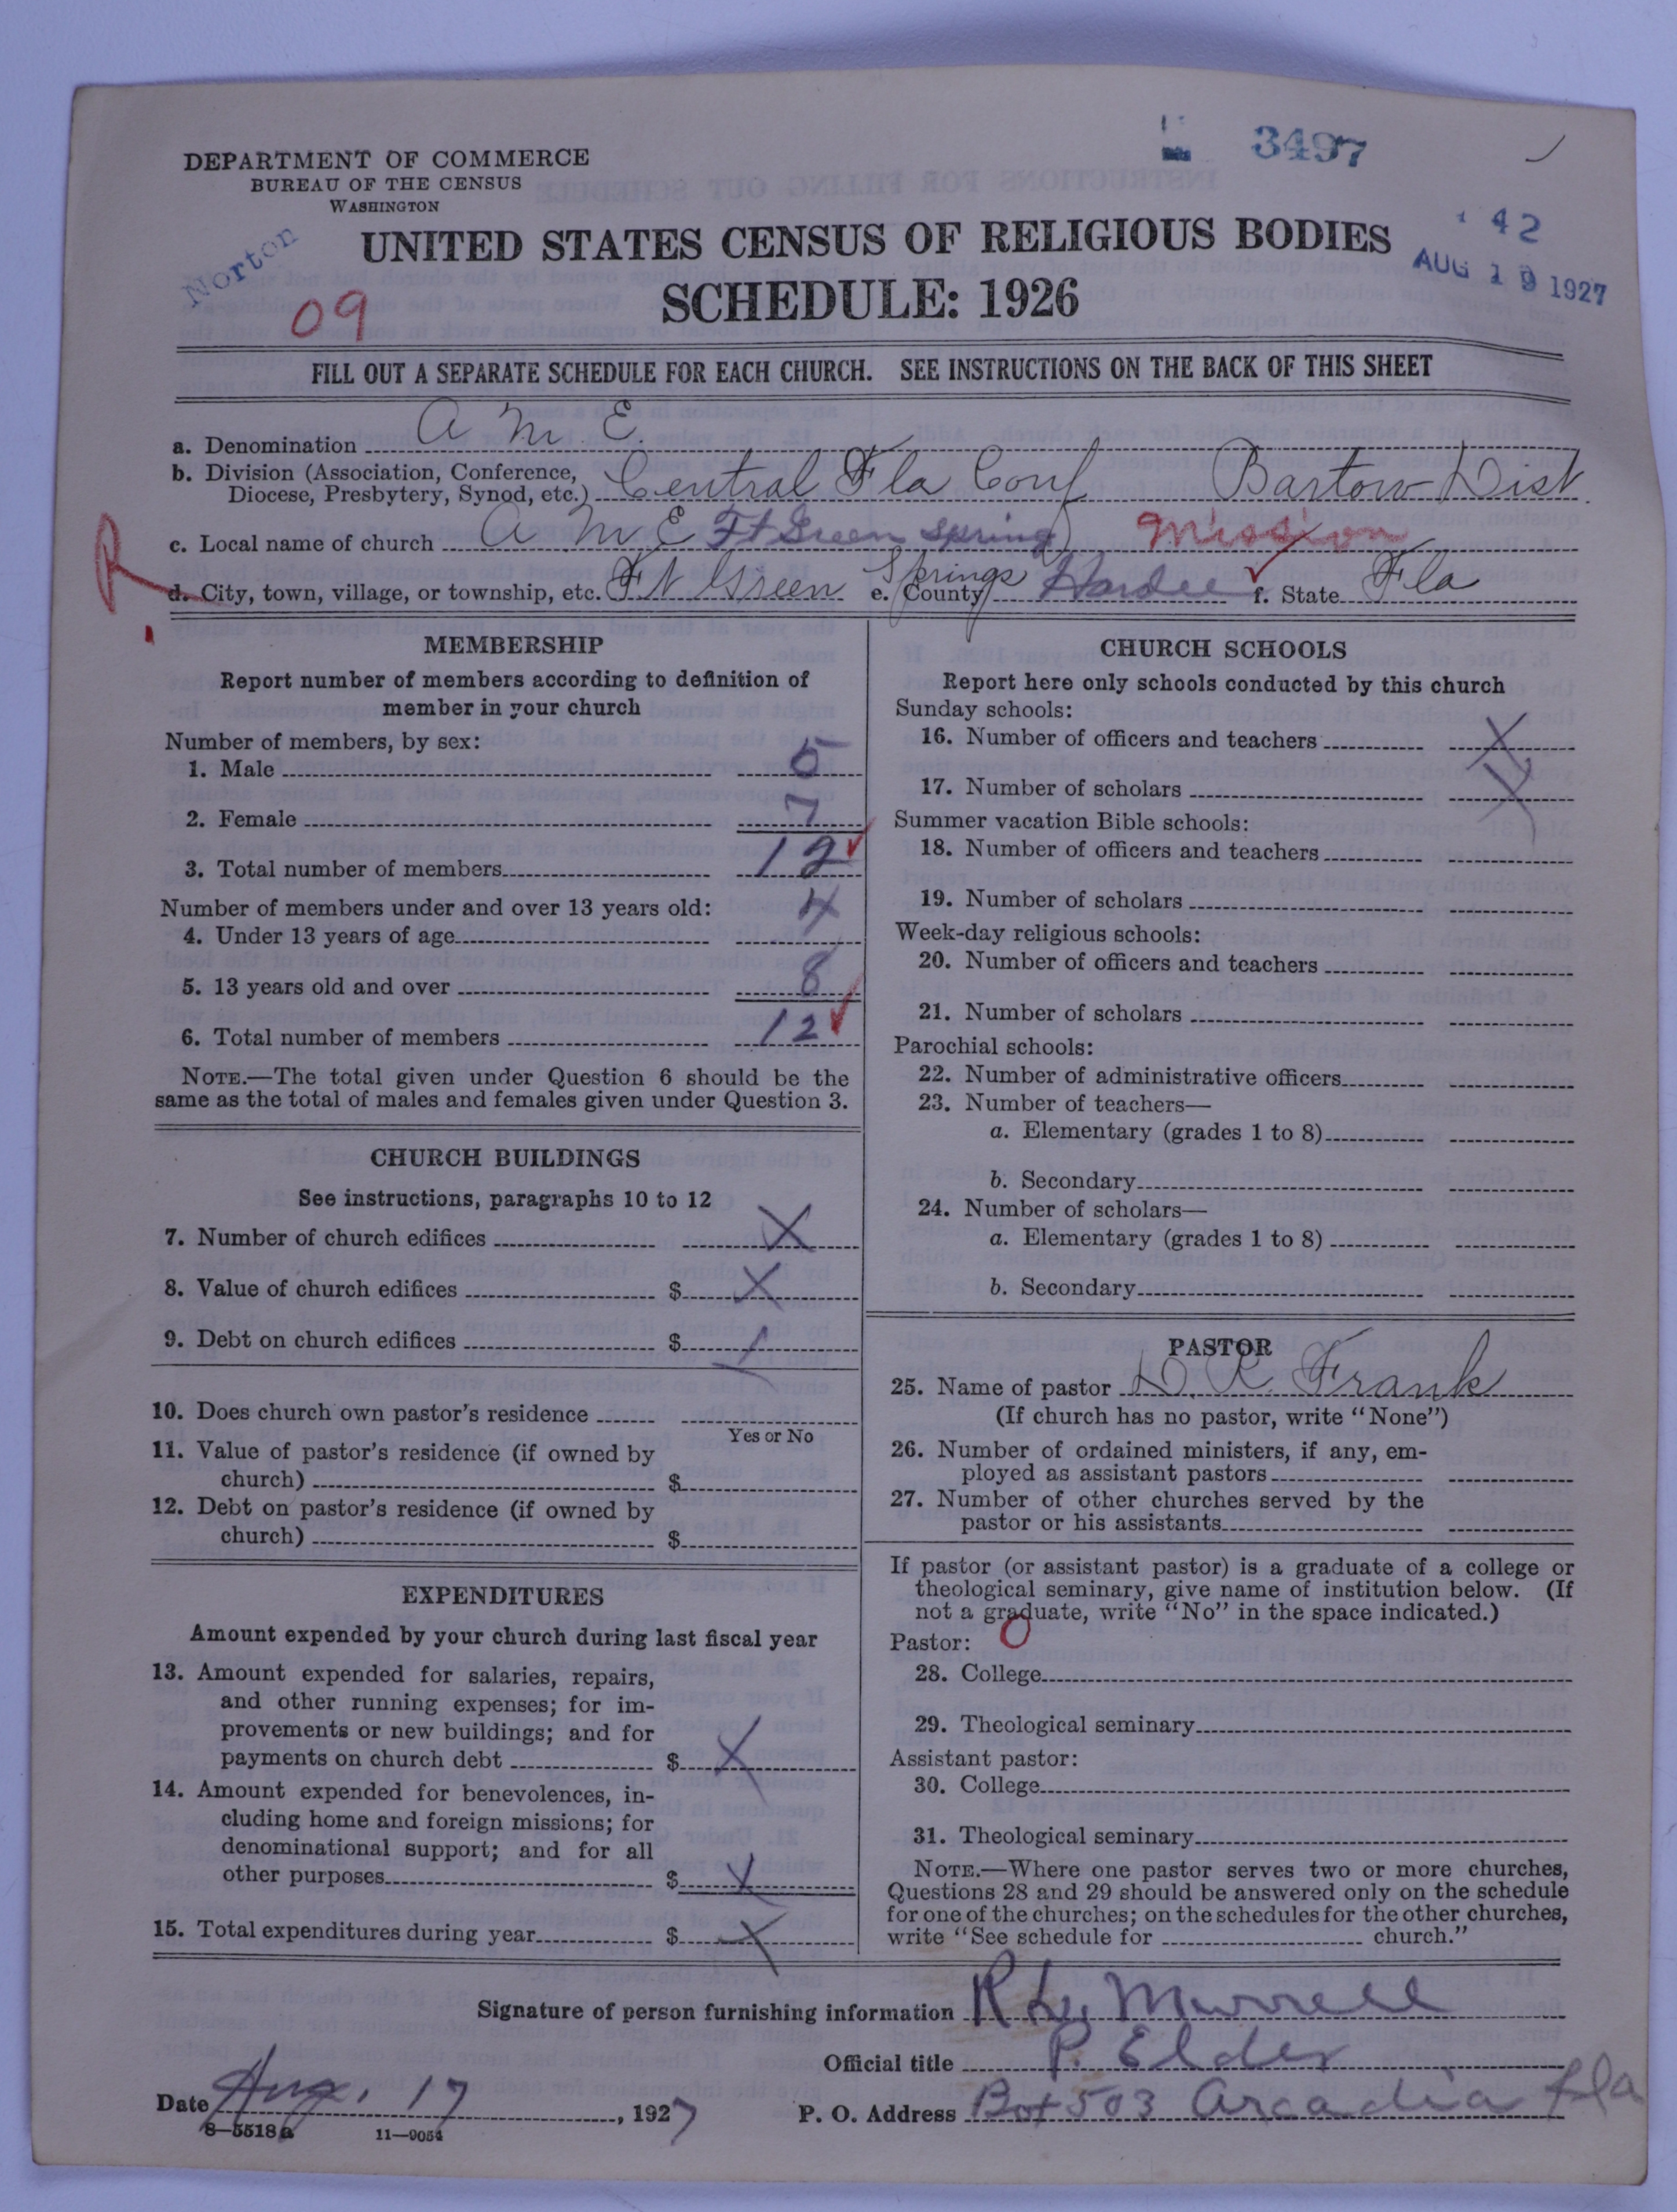 3497
DEPARTMENT OF COMMERCE
BUREAU OF THE CENSUS
WASHINGTON
Norton
42
AUG 19 1927
UNITED STATES CENSUS OF RELIGIOUS BODIES
SCHEDULE: 1926
09
FILL OUT A SEPARATE SCHEDULE FOR EACH CHURCH. SEE INSTRUCTIONS ON THE BACK OF THIS SHEET
a. Denomination A M E
b. Division (Association, Conference,
Diocese, Presbytery, Synod, etc.) Central Fla Conf Bartow Dist
c. Local name of church A M E Ft Green Spring Mission
R
d. City, town, village, or township, etc. Ft Green Springs e. County Hardee f. State Fla
MEMBERSHIP
Report number of members according to definition of
member in your church
Number of members, by sex:
1. Male 5
2. Female 7
3. Total number of members 12
Number of members under and over 13 years old:
4. Under 13 years of age 4
5. 13 years old and over 8
6. Total number of members 12
NOTE.—The total given under Question 6 should be the
same as the total of males and females given under Question 3.
CHURCH BUILDINGS
See instructions, paragraphs 10 to 12
7. Number of church edifices X
8. Value of church edifices $ X
9. Debt on church edifices $
10. Does church own pastor's residence
Yes or No
11. Value of pastor's residence (if owned by
church) $
12. Debt on pastor's residence (if owned by
church) $
EXPENDITURES
Amount expended by your church during last fiscal year
13. Amount expended for salaries, repairs,
and other running expenses; for im-
provements or new buildings; and for
payments on church debt $ X
14. Amount expended for benevolences, in-
cluding home and foreign missions; for
denominational support; and for all
other purposes $ X
15. Total expenditures during year $ X
CHURCH SCHOOLS
Report here only schools conducted by this church
Sunday schools:
16. Number of officers and teachers X
17. Number of scholars X
Summer vacation Bible schools:
18. Number of officers and teachers
19. Number of scholars
Week-day religious schools:
20. Number of officers and teachers
21. Number of scholars
Parochial schools:
22. Number of administrative officers
23. Number of teachers—
a. Elementary (grades 1 to 8)
b. Secondary
24. Number of scholars—
a. Elementary (grades 1 to 8)
b. Secondary
PASTOR
25. Name of pastor D. R. Frank
(If church has no pastor, write "None")
26. Number of ordained ministers, if any, em-
ployed as assistant pastors
27. Number of other churches served by the
pastor or his assistants
If pastor (or assistant pastor) is a graduate of a college or
theological seminary, give name of institution below. (If
not a graduate, write "No" in the space indicated.)
Pastor: 0
28. College
29. Theological seminary
Assistant pastor:
30. College
31. Theological seminary
NOTE.—Where one pastor serves two or more churches,
Questions 28 and 29 should be answered only on the schedule
for one of the churches; on the schedules for the other churches,
write "See schedule for church."
Signature of person furnishing information R Murrell
Official title P. Elder
Date Aug. 17, 1927 P. O. Address Box 503 Arcadia Fla
8—5518a 11—9054